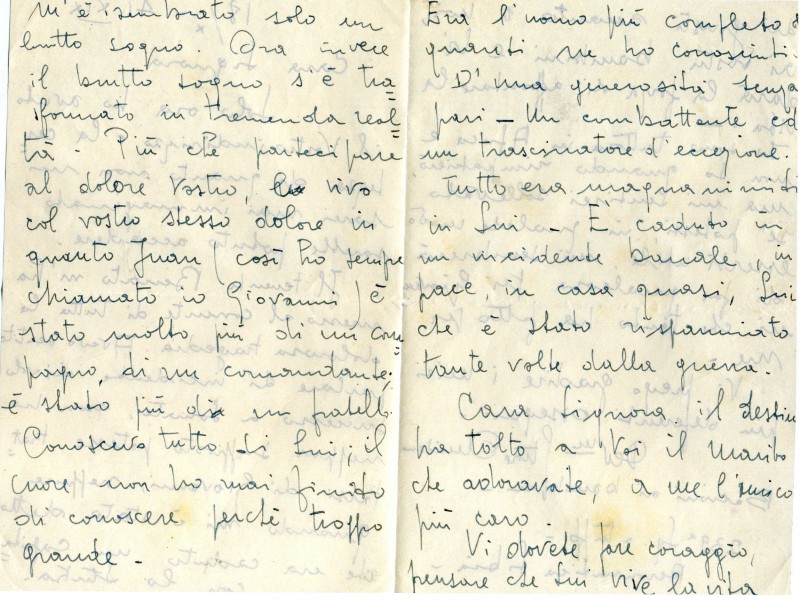 M'è sembrato solo un
brutto sogno. Ora invece
il brutto sogno s'è tra=
sformato in tremenda real=
tà. Più che partecipare
al dolore Vostro, lo vivo
col vostro stesso dolore in
quanto Juan (così ho sempre
chiamato io Giovanni) è
stato molto più di un com=
pagno, di un comandante;
è stato più di un fratello.
Conoscevo tutto di Lui; il
cuore non ho mai finito
di conoscere perché troppo
grande -
Era l'uomo più completo di
quanti ne ho conosciuti.
D'una generosità senza
pari - Un combattente ed
un trascinatore d'eccezione.
Tutto era magnanimità
in Lui - È caduto in
un incidente banale, in
pace, in casa quasi, Lui
che è stato risparmiato
tante volte dalla guerra.
Cara Signora il destino
ha tolto a Voi il Marito
che adoravate, a me l'amico
più caro.
Vi dovete fare coraggio,
pensare che Lui vive la vita